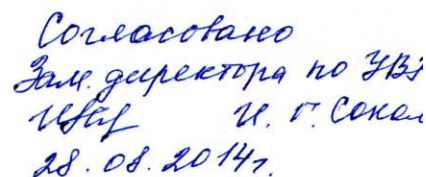 Согласовано
Зам. директора по УВР
И. Г. Сокол
28.08.2014г.